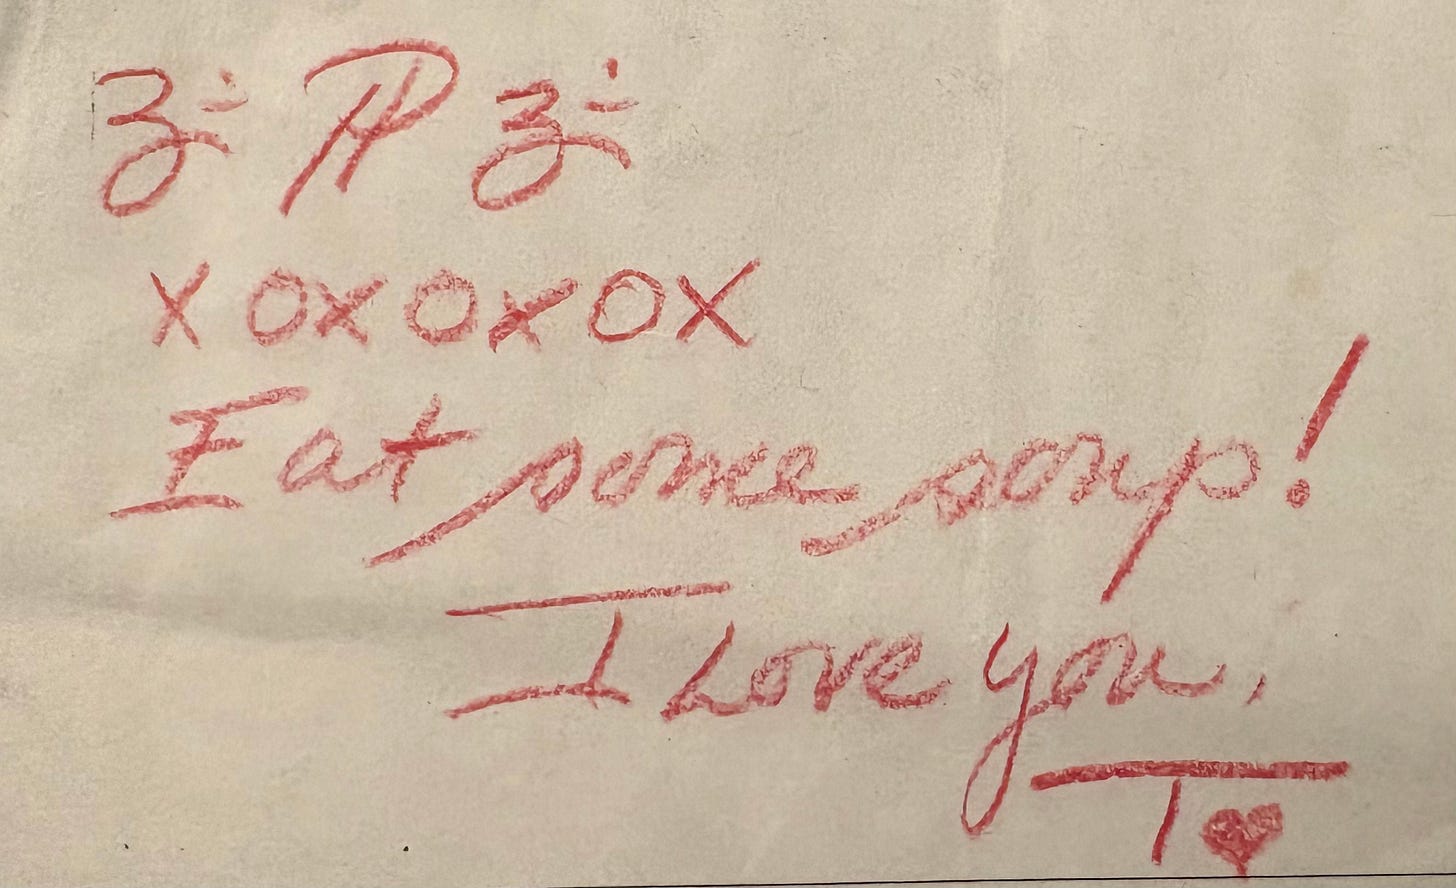 xoxoxox
Eat some soup!
I Love you,
T♥